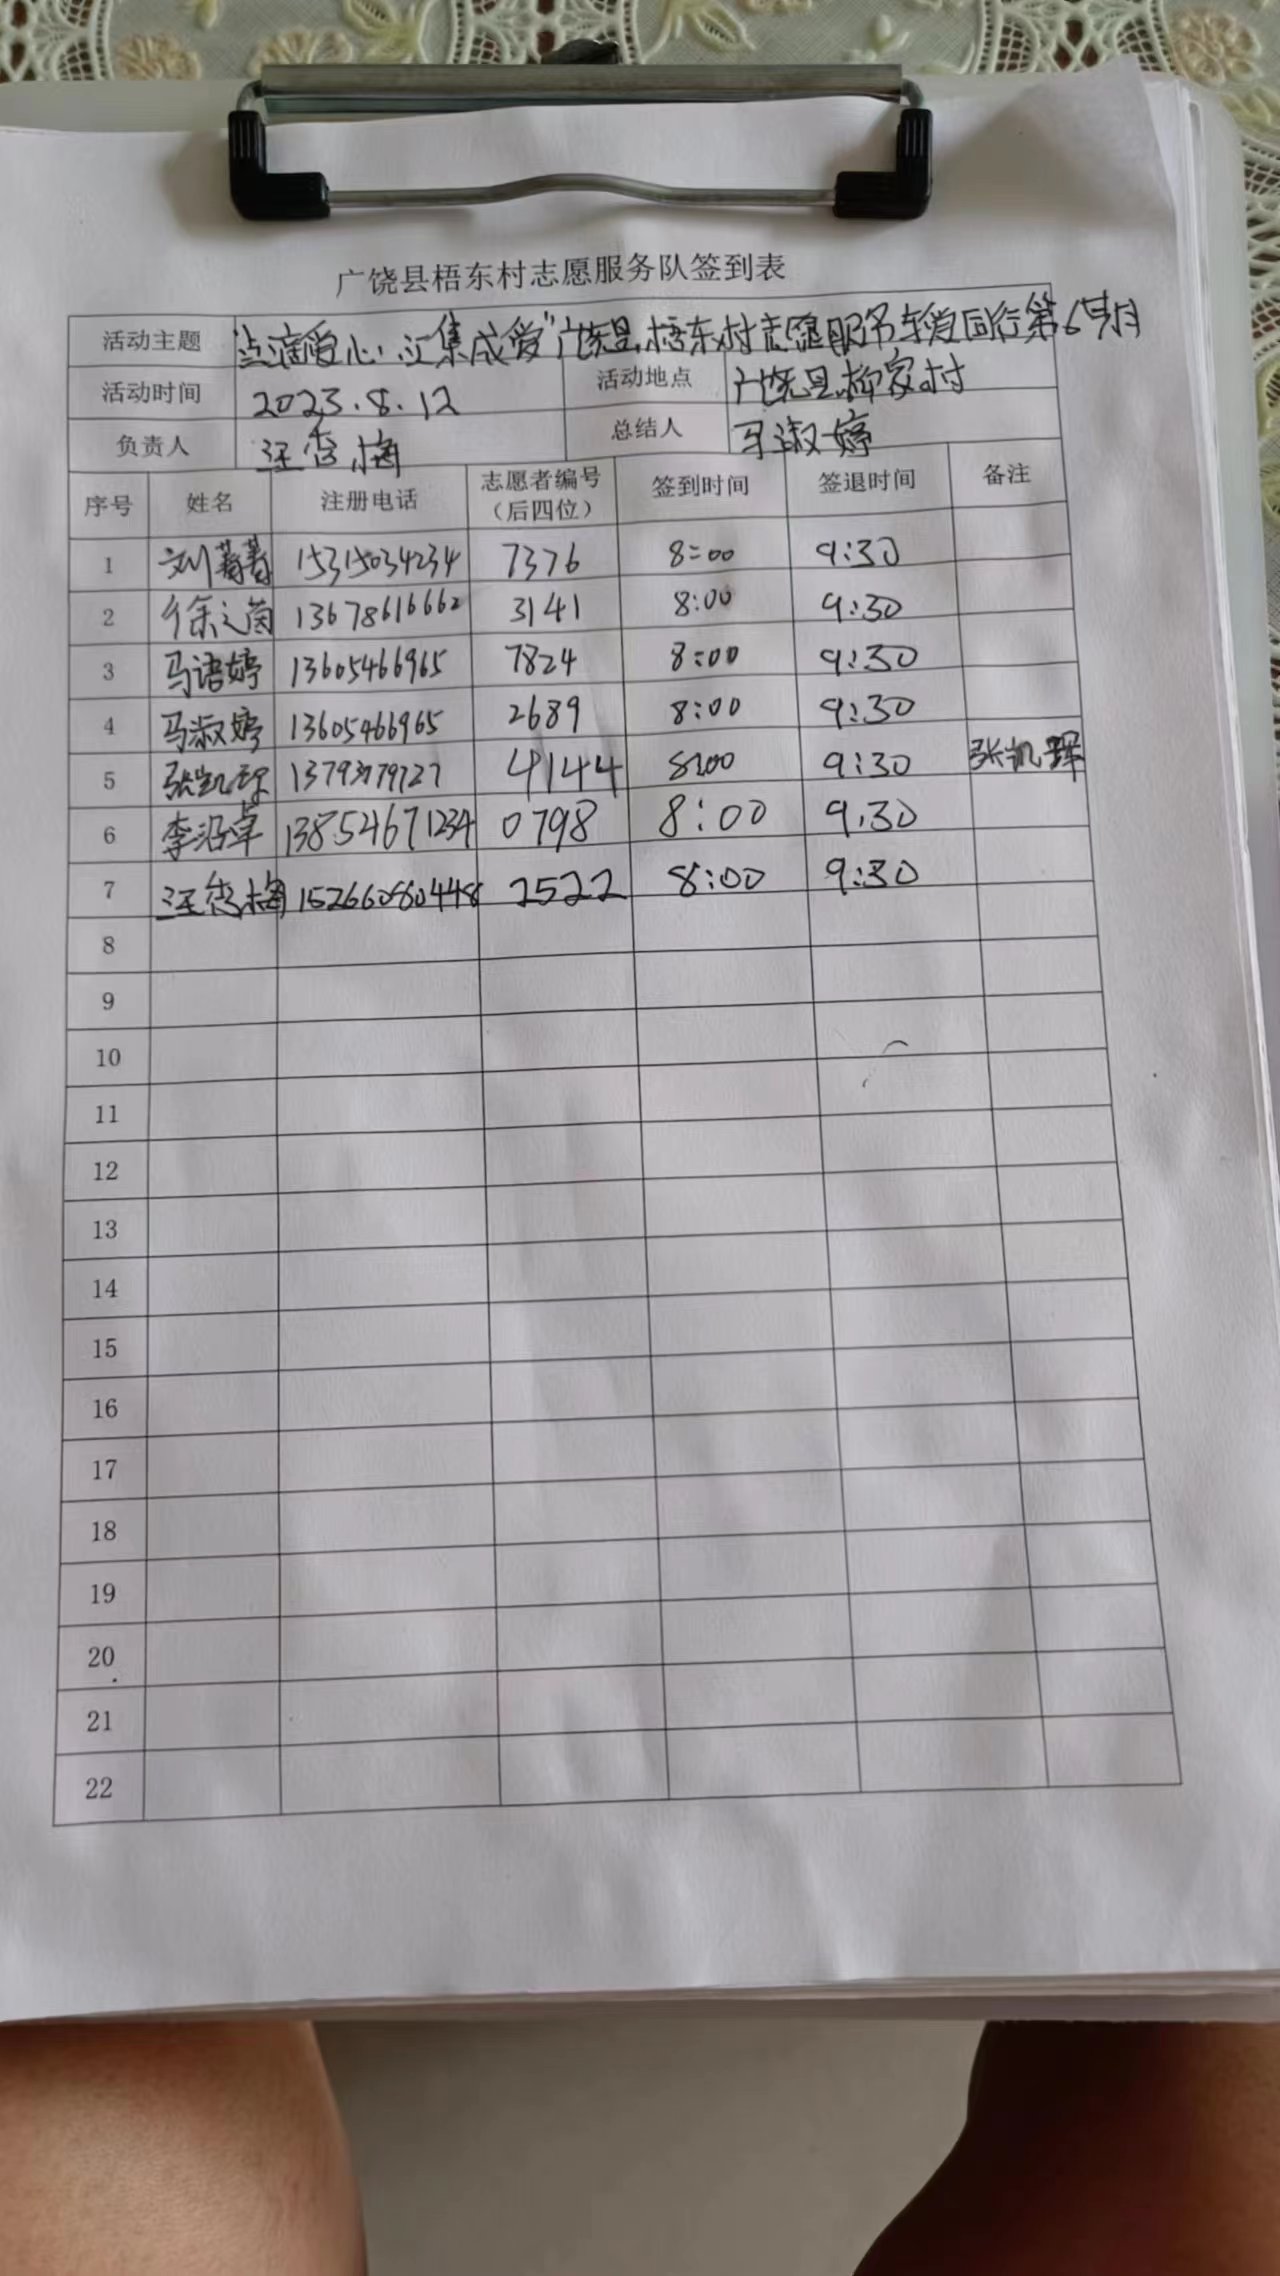 广饶县梧东村志愿服务队签到表
活动主题 "点滴爱心,汇集成爱"广饶县梧东村志愿服务车爱同行第6月
活动时间 2023.8.12 活动地点 广饶县柳家村
负责人 汪杏梅 总结人 马淑婷
序号 姓名 注册电话 志愿者编号(后四位) 签到时间 签退时间 备注
1 刘菁菁 15315034234 7376 8:00 9:30
2 徐之茵 13678616662 3141 8:00 9:30
3 马语婷 13605466965 7824 8:00 9:30
4 马淑婷 13605466965 2689 8:00 9:30
5 张凯珲 13793979727 4144 8:00 9:30 张凯珲
6 李沿卓 13854671234 0798 8:00 9:30
7 汪杏梅 15266080448 2522 8:00 9:30
8
9
10
11
12
13
14
15
16
17
18
19
20
21
22